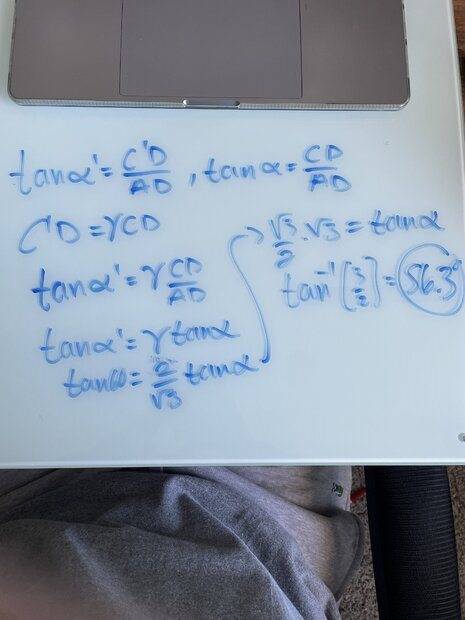 tanα' = C'D/AD , tanα = CD/AD
C'D = γCD
tanα' = γ CD/AD
tanα' = γ tanα
tan60 = 2/√3 tanα
√3/2 · √3 = tanα
tan⁻¹[3/2] = 56.3°